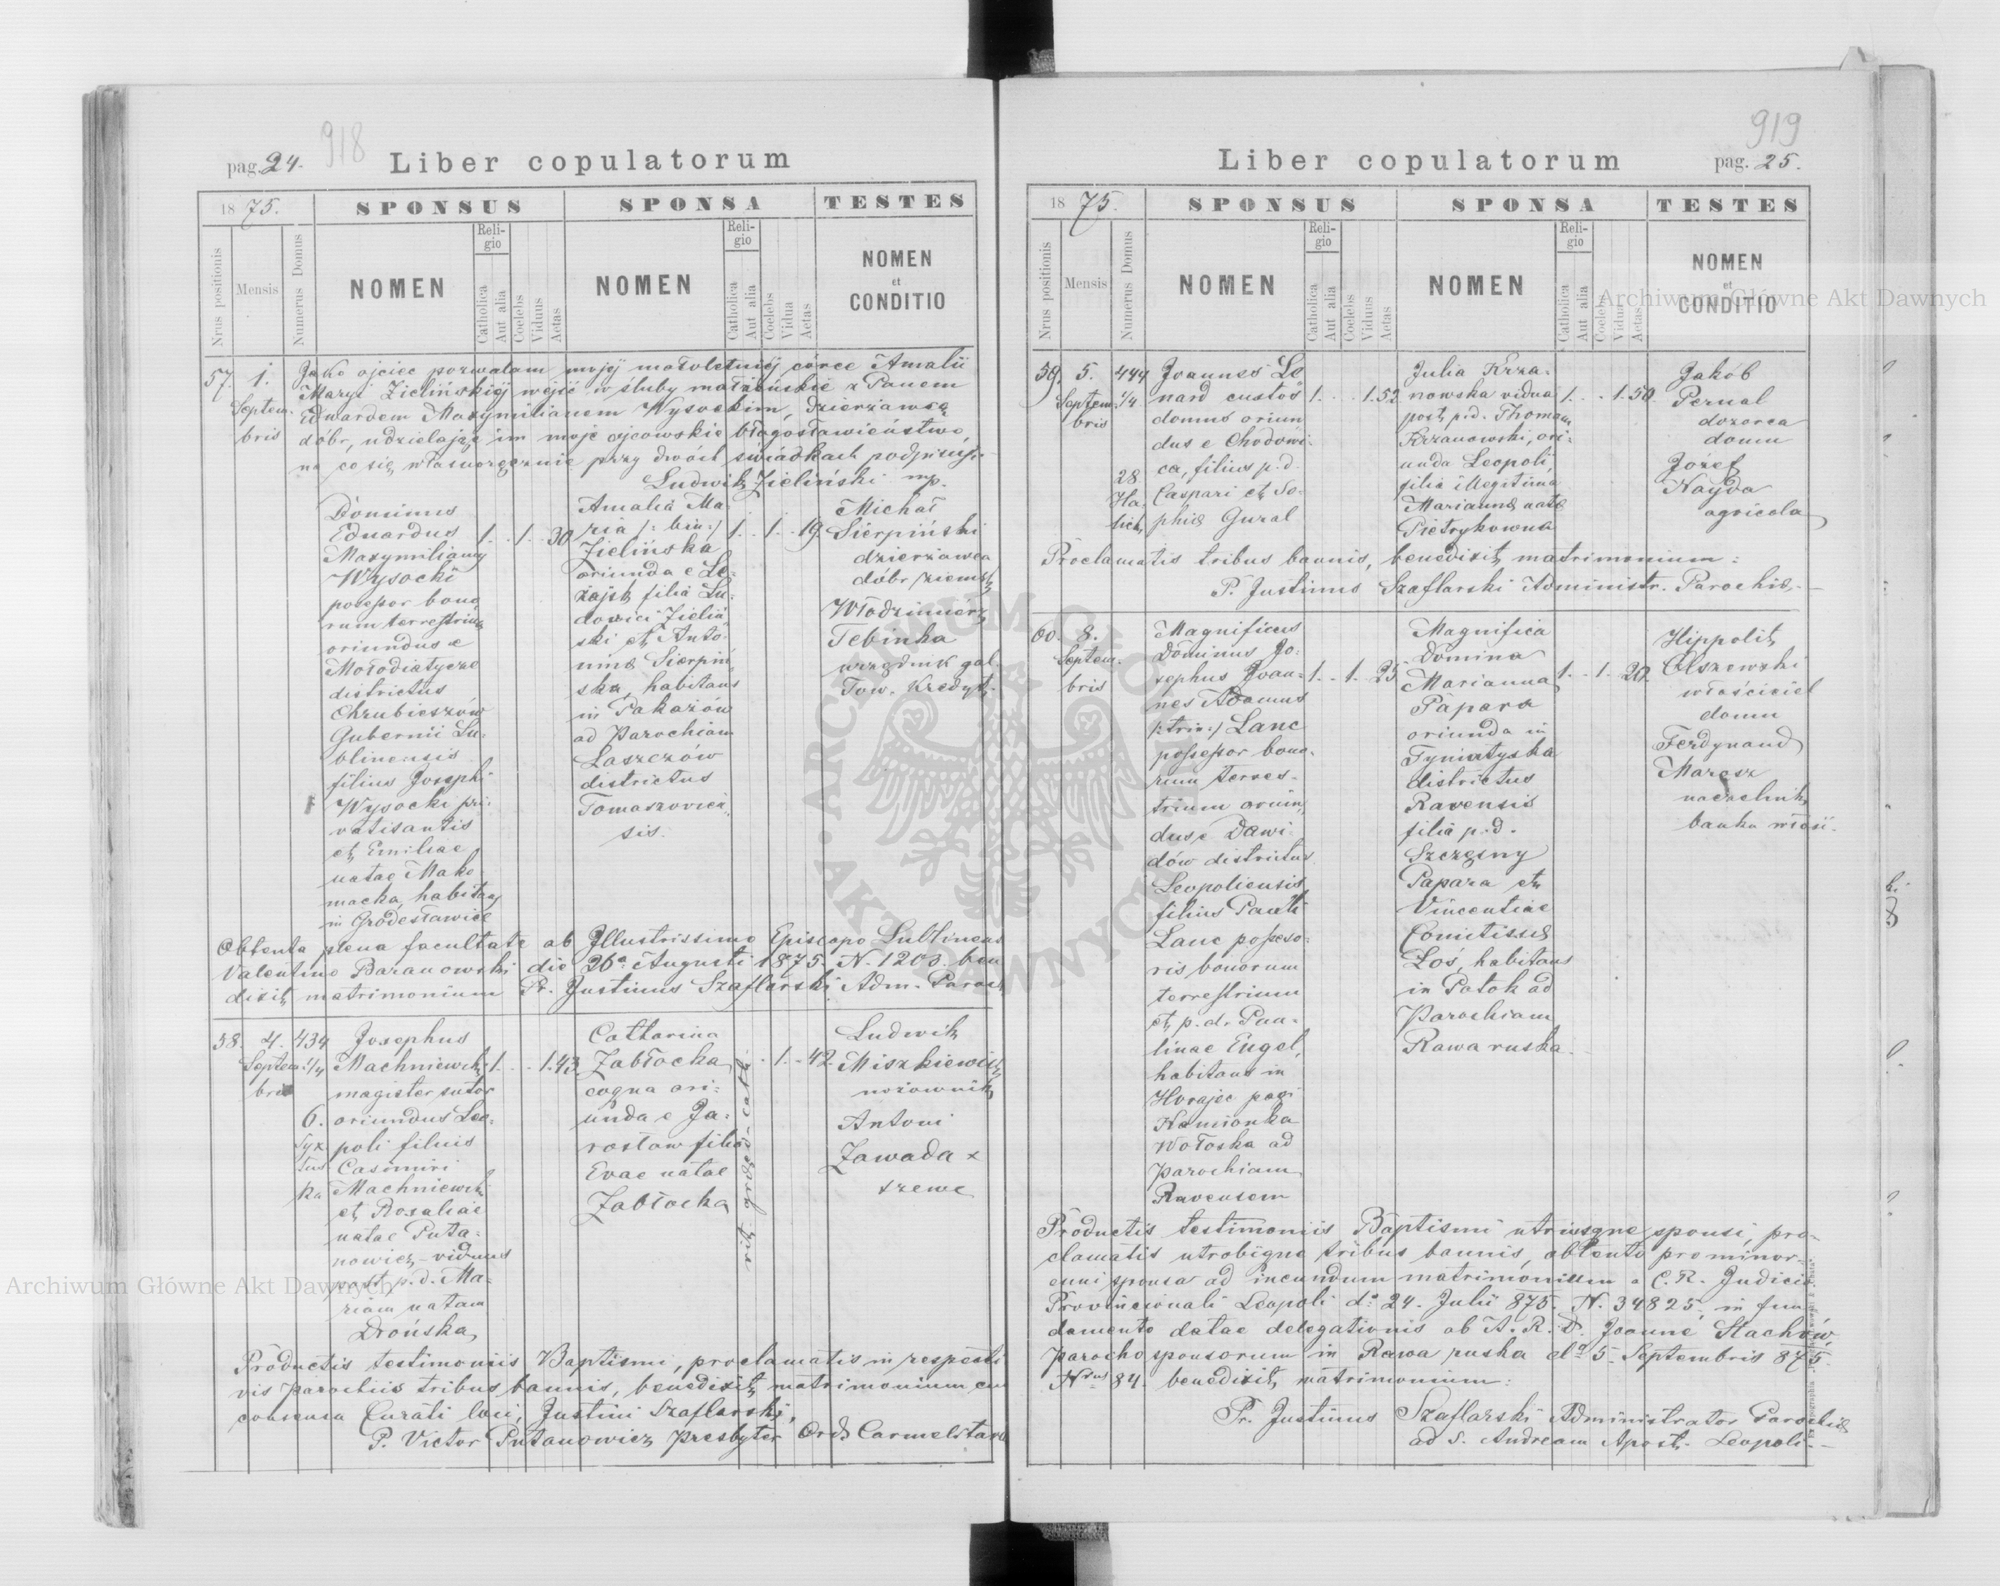 918
pag. 24.
Liber copulatorum
1875.
SPONSUS
SPONSA
TESTES
Nrus positionis
Mensis
Numerus Domus
NOMEN
Religio
Catholica
Aut alia
Coelebs
Viduus
Aetas
NOMEN
Religio
Catholica
Aut alia
Coelebs
Vidua
Aetas
NOMEN
et
CONDITIO
57. 1.
Septem-
bris
Jako ojciec pozwalam mojéj małoletniéj córce Amalii
Maryi Zielińskiéj wejść w śluby małżeńskie z Panem
Edwardem Maxymilianem Wysockim, dzierżawcą
dóbr, udzielając im moje ojcowskie błogosławieństwo,
na co się własnoręcznie przy dwóch świadkach podpisuję.
Ludwik Zieliński mp.
Dominus
Eduardus
Maxymilianus
Wysocki
possessor bono
rum terrestrium
oriundus e
Mołodiatycze
districtus
Chrubieszów
Gubernii Lu-
blinensis
filius Josephi
Wysocki pri-
vatisantis
et Emiliae
natae Mako
macka, habitans
in Gródesławice
1. . 1. 30
Amalia Ma
ria /: bin :/
Zielińska
oriunda e Le-
żajsk filia Lu-
dovici Zieliń
ski et Anto-
ninæ Sierpiń
ska, habitans
in
ad Parochiam
Łaszczów
districtus
Tomaszovien-
sis.
1. . 1. 19.
Michał
Sierpiński
dzierżawca
dóbr ziemsk
Włodzimierz
Tebinka
urzędnik gal.
Tow. Kredyt.
Obtenta plena facultate ab Illustrissimo Episcopo Lublinens
Valentino Baranowski die 26a Augusti 1875. N. 1203. bene
dixit matrimonium Pr. Justinus Szaflarski Adm. Paroch
58. 4. 434
Septem- 1/4
bris
6.
Syx
tus
ka
Josephus
Machniewski
magister sutor
oriundus Leo-
poli filius
Casimiri
Machniewski
et Rosaliae
natae Puta-
nowicz - viduus
post p. d. Ma-
riam natam
Drońska
1. . . 1. 43.
Catharina
Zabłocka
coqua ori-
unda e Ja-
rosław filia
Evae natae
Zabłocka
rit. græco-cath.
. 1. . 42.
Ludwik
Miszkiewicz
nożownik
Antoni
Zawada x
szewc
Productis testimoniis Baptismi, proclamatis in respecti
vis Parochiis tribus bannis, benedixit matrimonium cum
consensu Curati loci, Justini Szaflarski,
P. Victor Putanowicz Presbyter Ord. Carmelitaru
919
Liber copulatorum
pag. 25.
1875.
SPONSUS
SPONSA
TESTES
Nrus positionis
Mensis
Numerus Domus
NOMEN
Religio
Catholica
Aut alia
Coelebs
Viduus
Aetas
NOMEN
Religio
Catholica
Aut alia
Coelebs
Vidua
Aetas
NOMEN
et
CONDITIO
59. 5. 444
Septem- 1/4
bris
28
Ha
lick.
Joannes Le
nard custos
domus oriun
dus e Chodowi-
ca, filius p. d.
Caspari et So-
phiæ Gural
1. . . 1. 52
Julia Krza-
nowska vidua
post p. d. Thomam
Krzanowski, ori-
unda Leopoli,
filia illegitima
Mariannæ natæ
Pietrykowna
1. . . 1. 50.
Jakób
Pernal
dozorca
domu
Józef
Nayda
agricola
Proclamatis tribus bannis, benedixit matrimonium:
P. Justinus Szaflarski Administr. Parochiæ.
60. 8.
Septem-
bris
Magnificus
Dominus Jo-
sephus Joan-
nes Adamus
/: trin :/ Lanc
possessor bono-
rum terres-
trium oriun
dus e Dawi-
dów districtus
Leopoliensis,
filius Pauli
Lanc posseso-
ris bonorum
terrestrium
et p. d. Pau-
linae Engel,
habitans in
Hrajec pagi
Kamionka
Wołoska ad
Parochiam
Ravensem
1. . 1. 25
Magnifica
Domina
Marianna
Papara
oriunda in
Tyniatyska
districtus
Ravensis
filia p. d.
Szczęsny
Papara et
Vincentiae
Comitissæ
Łoś, habitans
in Potok ad
Parochiam
Rawa ruska.
1. . 1. 20.
Hippolit
Olszewski
właściciel
domu
Ferdynand
Maresz
naczelnik
banku włości-
Productis testimoniis Baptismi utriusque sponsi, pro-
clamatis utrobique tribus bannis, obtento pro minor-
enni sponsa ad ineundum matrimonium a C. R. Judicio
Provincionali Leopoli do 24. Julii 875. N. 34825. in fun
damento datae delegationis ab A. R. D. Joanne Stachów
Parocho sponsorum in Rawa ruska do 5. Septembris 875.
Nrus 84. benedixit matrimonium:
Pr. Justinus Szaflarski Administrator Parochiæ
ad S. Andream Apost. Leopoli.
Archiwum Główne Akt Dawnych
Archiwum Główne Akt Dawnych
ARCHIWUM GŁÓWNE AKT DAWNYCH